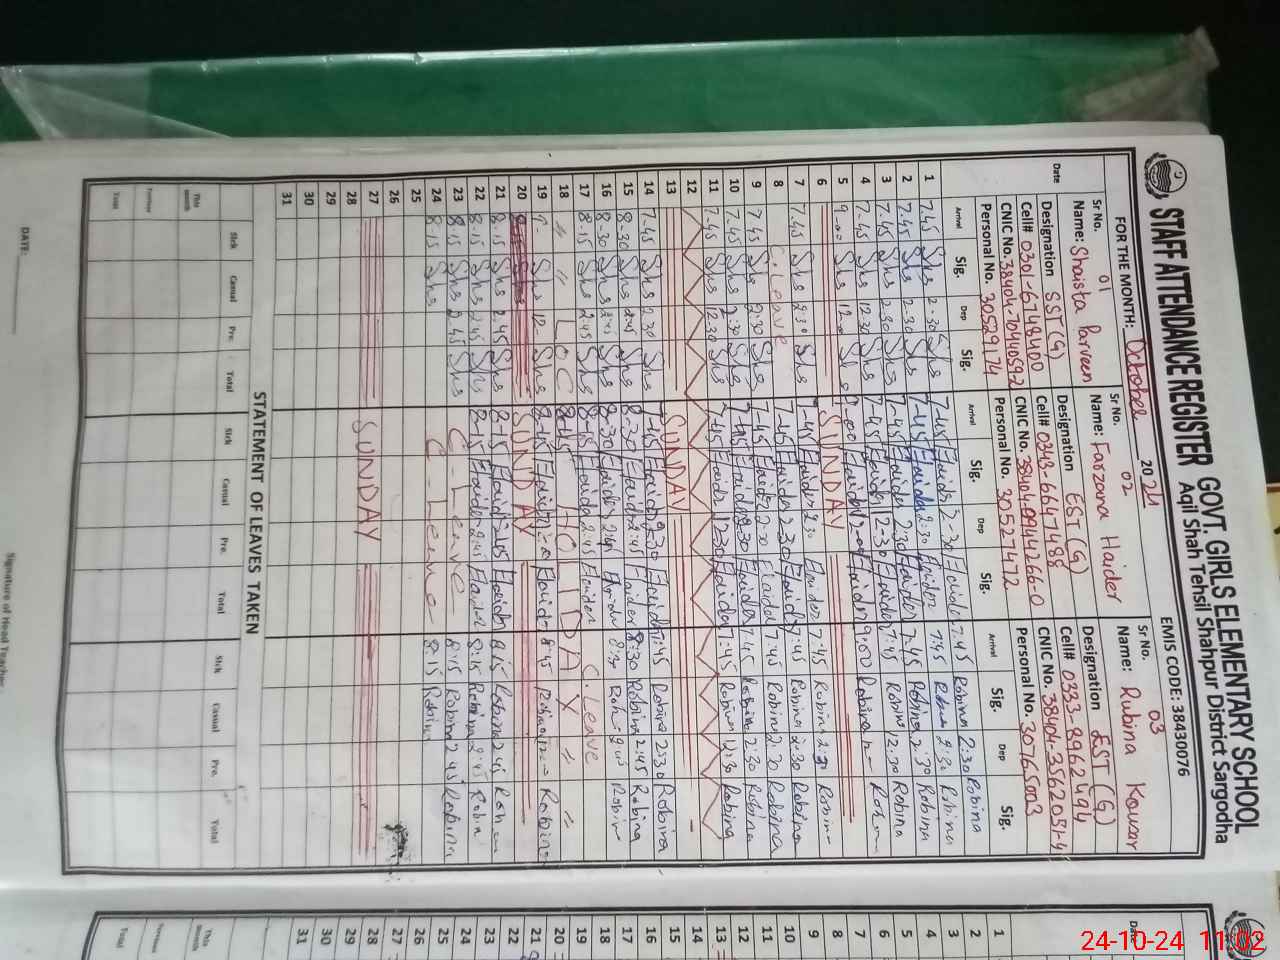 STAFF ATTENDANCE REGISTER GOVT. GIRLS ELEMENTARY SCHOOL
Aqil Shah Tehsil Shahpur District Sargodha
FOR THE MONTH: October 2024 EMIS CODE: 38430076
Sr No. 01
Name: Shaista Parveen
Designation SST(G)
Cell# 0301-6748400
CNIC No.
Personal No. 30529174
Sr No. 02
Name: Farzana Haider
Designation EST(G)
Cell# 0343-6647488
CNIC No. 38404-0944266-0
Personal No. 30527472
Sr No. 03
Name: Rubina Kousar
Designation EST(G)
Cell# 0333-8962494
CNIC No.
Personal No. 30765003
Date Arrival Sig. Dep Sig. Arrival Sig. Dep Sig. Arrival Sig. Dep Sig.
1 7.45 Shs 2.30 Shs 7-45 Haider 2-30 Haider 7:45 Robina 2:30 Robina
2 7.45 Shs 2.30 Shs 7-45 Haider 2:30 Haider 7:45 Robina 2:30 Robina
3 7.45 Shs 2.30 Shs 7-45 Haider 2:30 Haider 7:45 Robina 2:30 Robina
4 7.45 Shs 12.30 Shs 7-45 Haider 12-30 Haider 7:45 Robina 12:30 Robina
5 9.00 Shs 12.00 Haider 9:00 Robina
6 SUNDAY
7 7.45 Shs 2:30 Shs 7-45 Haider 2:30 Haider 7:45 Robina 2:30 Robina
8 C.Leave 7-45 Haider 2:30 Haider 7:45 Robina 2:30 Robina
9 7.45 Shs 2:30 Shs 7-45 Haider 2:30 Haider 7:45 Robina 2:30 Robina
10 7.45 Shs 2:30 Shs 7-45 Haider 2:30 Haider 7:45 Robina 2:30 Robina
11 7.45 Shs 12:30 Shs 7-45 Haider 12:30 Haider 7:45 Robina 12:30 Robina
12
13 SUNDAY
14 7.45 Shs 2.30 Shs 7-45 Haider 2:30 Haider 7:45 Robina 2:30 Robina
15 8.30 Shs 2:45 Shs 8-30 Haider 2:45 Haider 8:30 Robina 2:45 Robina
16 8-30 Shs 2:45 Shs 8-30 Haider 2:45 Haider 8:30
17 8.15 Shs 2:45 Shs 8-15 Haider 2:45 Haider C.Leave
18 " " LOC HOLIDAY " "
19 Shs 12 Shs 8-15 Haider Haider 8:15 Robina Robina
20 SUNDAY
21 8.15 Shs 2.45 Shs 8-15 Haider 2:45 Haider 8:15 Robina 2:45
22 8.15 Shs 2.45 Shs 8-15 Haider 2:45 Haider 8:15 Robina 2:45 Robina
23 8.15 Shs 2.45 Shs C-Leave 8:15 Robina 2:45 Robina
24 8.15 Shs C Leave 8:15 Robina
25
26
27 SUNDAY
28
29
30
31
STATEMENT OF LEAVES TAKEN
Sick Casual Pre. Total Sick Casual Pre. Total Sick Casual Pre. Total
This month
Previous
Total
DATE:
Signature of Head Teacher
Date 1 2 3 4 5 6 7 8 9 10 11 12 13 14 15 16 17 18 19 20 21 22 23 24 25 26 27 28 29 30 31
This month
Previous
Total
24-10-24 11:02